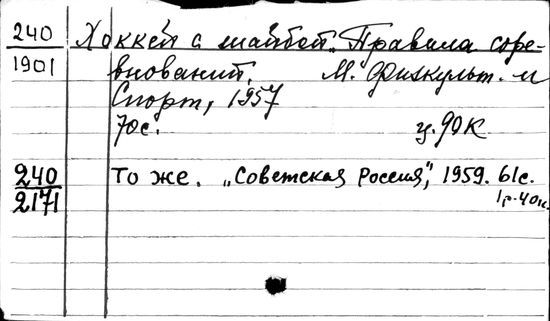 240
1901
Хоккей с шайбой. Правила соре-
внований. М. Физкульт. и
Спорт, 1957
70с. ц. 90к
240
2171
То же. „Советская Россия", 1959. 61с.
1р.40к.